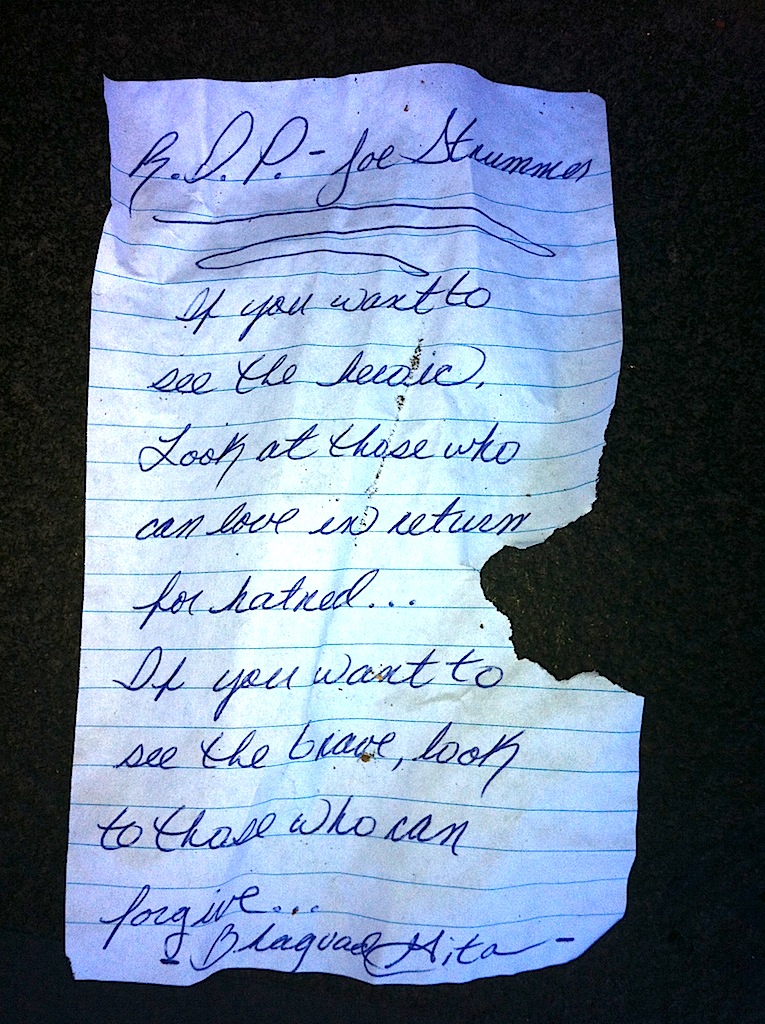 R.I.P. - Joe Strummer
If you want to
see the heroic,
Look at those who
can love in return
for hatred...
If you want to
see the brave, look
to those who can
forgive...
- Bhagvad Gita -